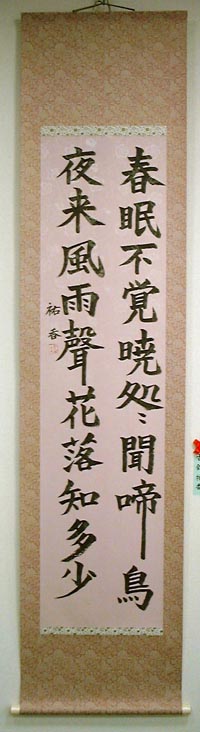 春眠不覚暁処〻聞啼鳥
夜来風雨聲花落知多少
祐香